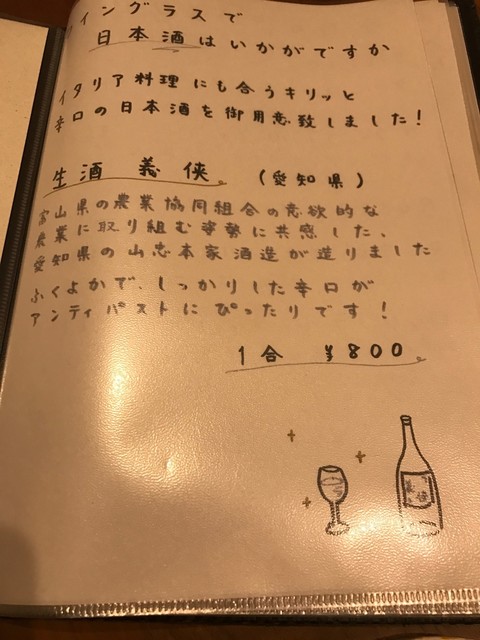 イングラスで
日本酒はいかがですか
イタリア料理にも合うキリッと
辛口の日本酒を御用意致しました！
生酒 義侠 （愛知県）
富山県の農業協同組合の意欲的な
農業に取り組む姿勢に共感した、
愛知県の山忠本家酒造が造りました
ふくよかで、しっかりした辛口が
アンティパストにぴったりです！
1合 ¥800
義侠